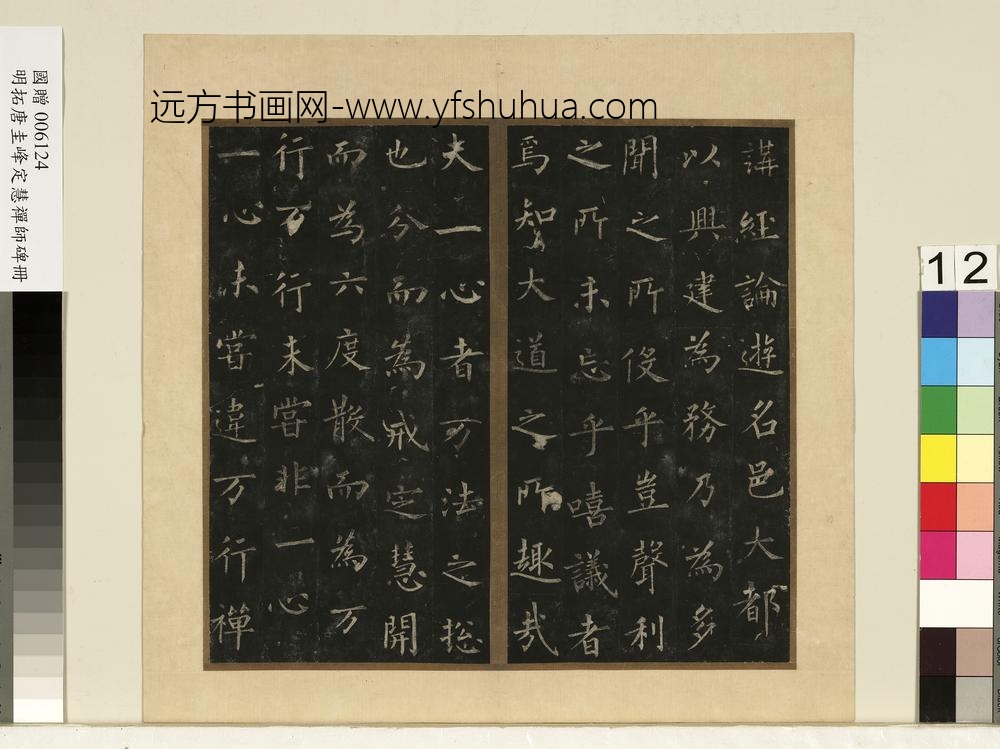 國贈 006124
明拓唐圭峰定慧禪師碑冊
远方书画网-www.yfshuhua.com
講經論遊名邑大都
以興建為務乃為多
聞之所伇乎豈聲利
之所未忘乎嘻議者
焉知大道之所趣哉
夫一心者万法之捴
也分而為戒定慧開
而為六度散而為万
行万行未嘗非一心
一心未嘗違万行禪
12